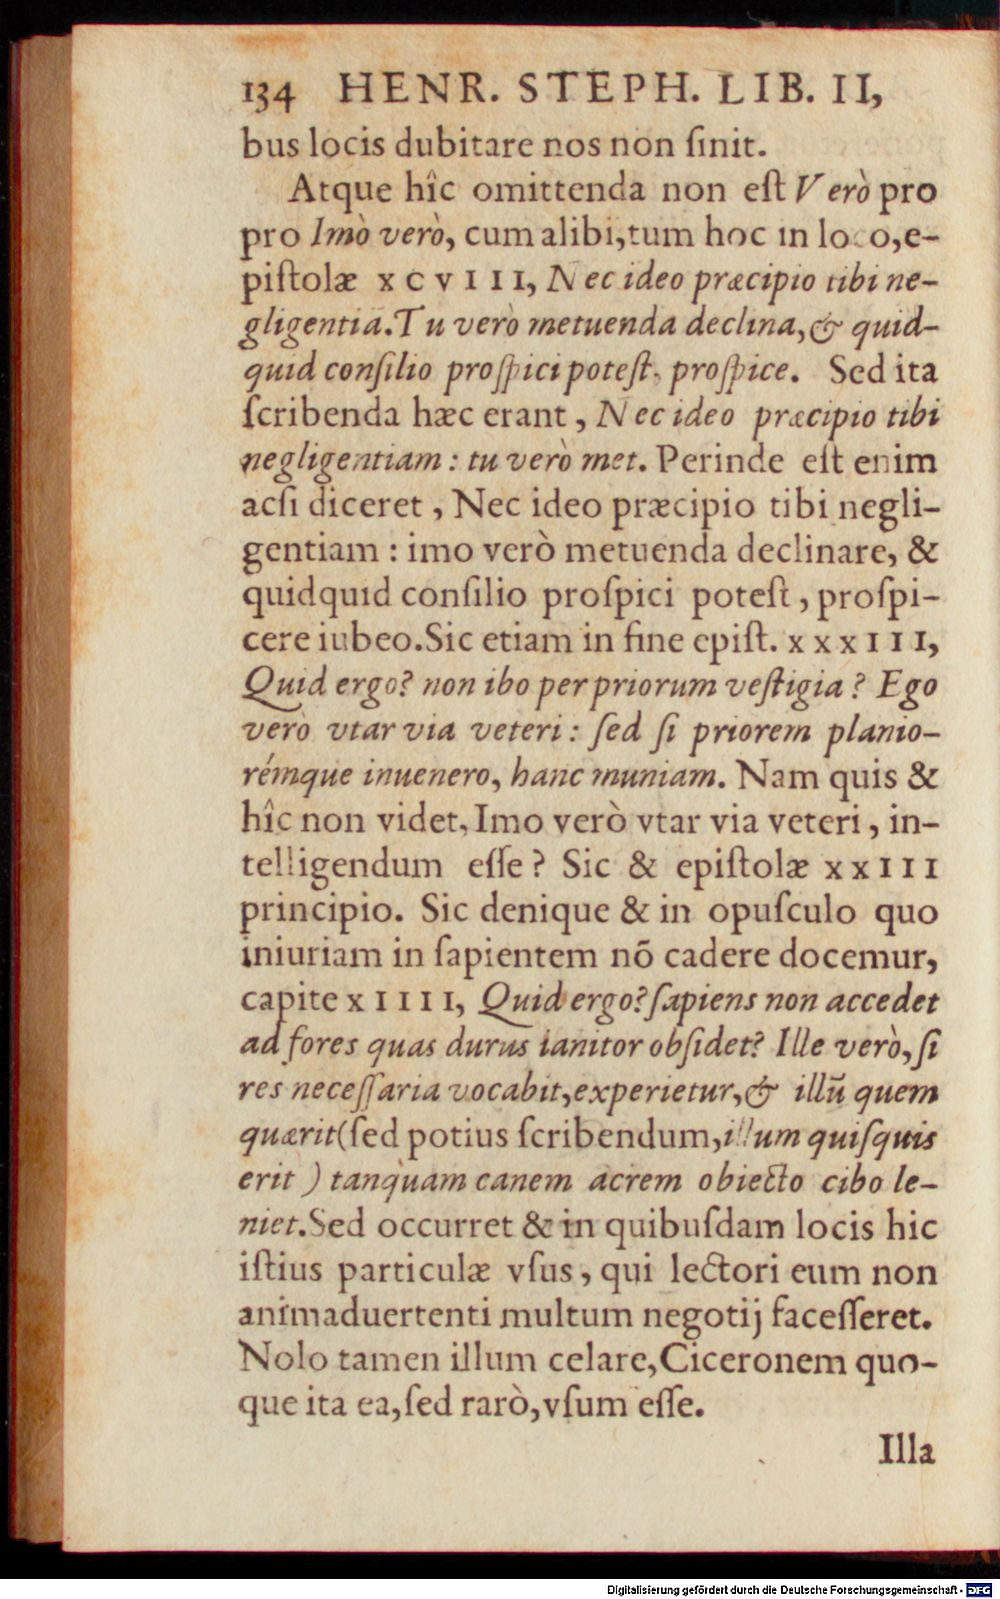 134 HENR. STEPH. LIB. II,
bus locis dubitare nos non ſinit.
Atque hîc omittenda non eſt Verò pro
pro Imò verò, cum alibi,tum hoc in loco,e-
piſtolæ XCVIII, Nec ideo præcipio tibi ne-
gligentia.Tu verò metuenda declina,& quid-
quid conſilio proſpici poteſt, proſpice. Sed ita
ſcribenda hæc erant, Nec ideo præcipio tibi
negligentiam: tu verò met. Perinde eſt enim
acſi diceret, Nec ideo præcipio tibi negli-
gentiam: imo verò metuenda declinare, &
quidquid conſilio proſpici poteſt, proſpi-
cere iubeo.Sic etiam in fine epiſt. XXXIII,
Quid ergo? non ibo per priorum veſtigia? Ego
verò vtar via veteri: ſed ſi priorem planio-
rémque inuenero, hanc muniam. Nam quis &
hîc non videt, Imo verò vtar via veteri, in-
telligendum eſſe? Sic & epiſtolæ XXIII
principio. Sic denique & in opuſculo quo
iniuriam in ſapientem nõ cadere docemur,
capite XIIII, Quid ergo?ſapiens non accedet
ad fores quas durus ianitor obſidet? Ille verò,ſi
res neceſſaria vocabit,experietur,& illũ quem
quærit(ſed potius ſcribendum,illum quiſquis
erit) tanquam canem acrem obiecto cibo le-
niet.Sed occurret & in quibuſdam locis hic
iſtius particulæ vſus, qui lectori eum non
animaduertenti multum negotij faceſſeret.
Nolo tamen illum celare,Ciceronem quo-
que ita ea,ſed rarò,vſum eſſe.
Illa
Digitalisierung gefördert durch die Deutsche Forschungsgemeinschaft - DFG